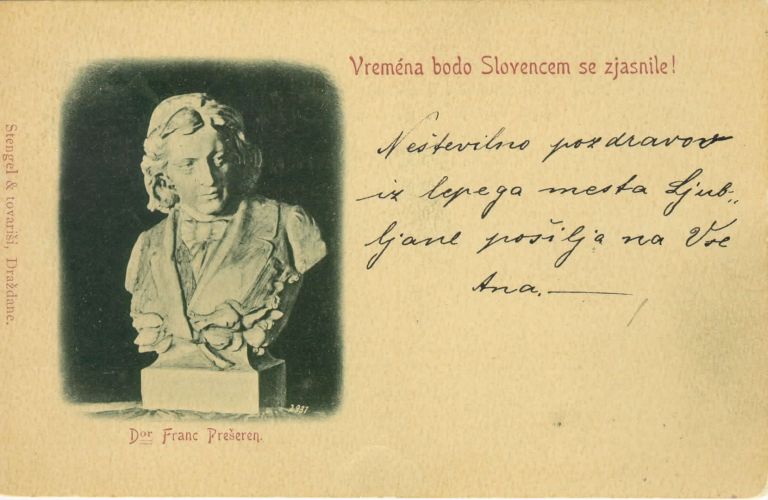 Vreména bodo Slovencem se zjasnile!
Neštevilno pozdravov
iz lepega mesta Ljub-
ljane pošilja na Vse
Ana.—
Stengel & tovariši, Draždane.
2937
Dor Franc Prešeren.